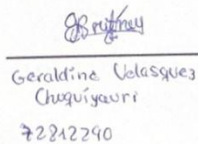 Geraldine Velasquez
Chuquiyauri
72812290